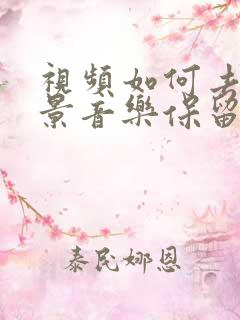 視頻如何去
景音樂保留
泰民娜恩